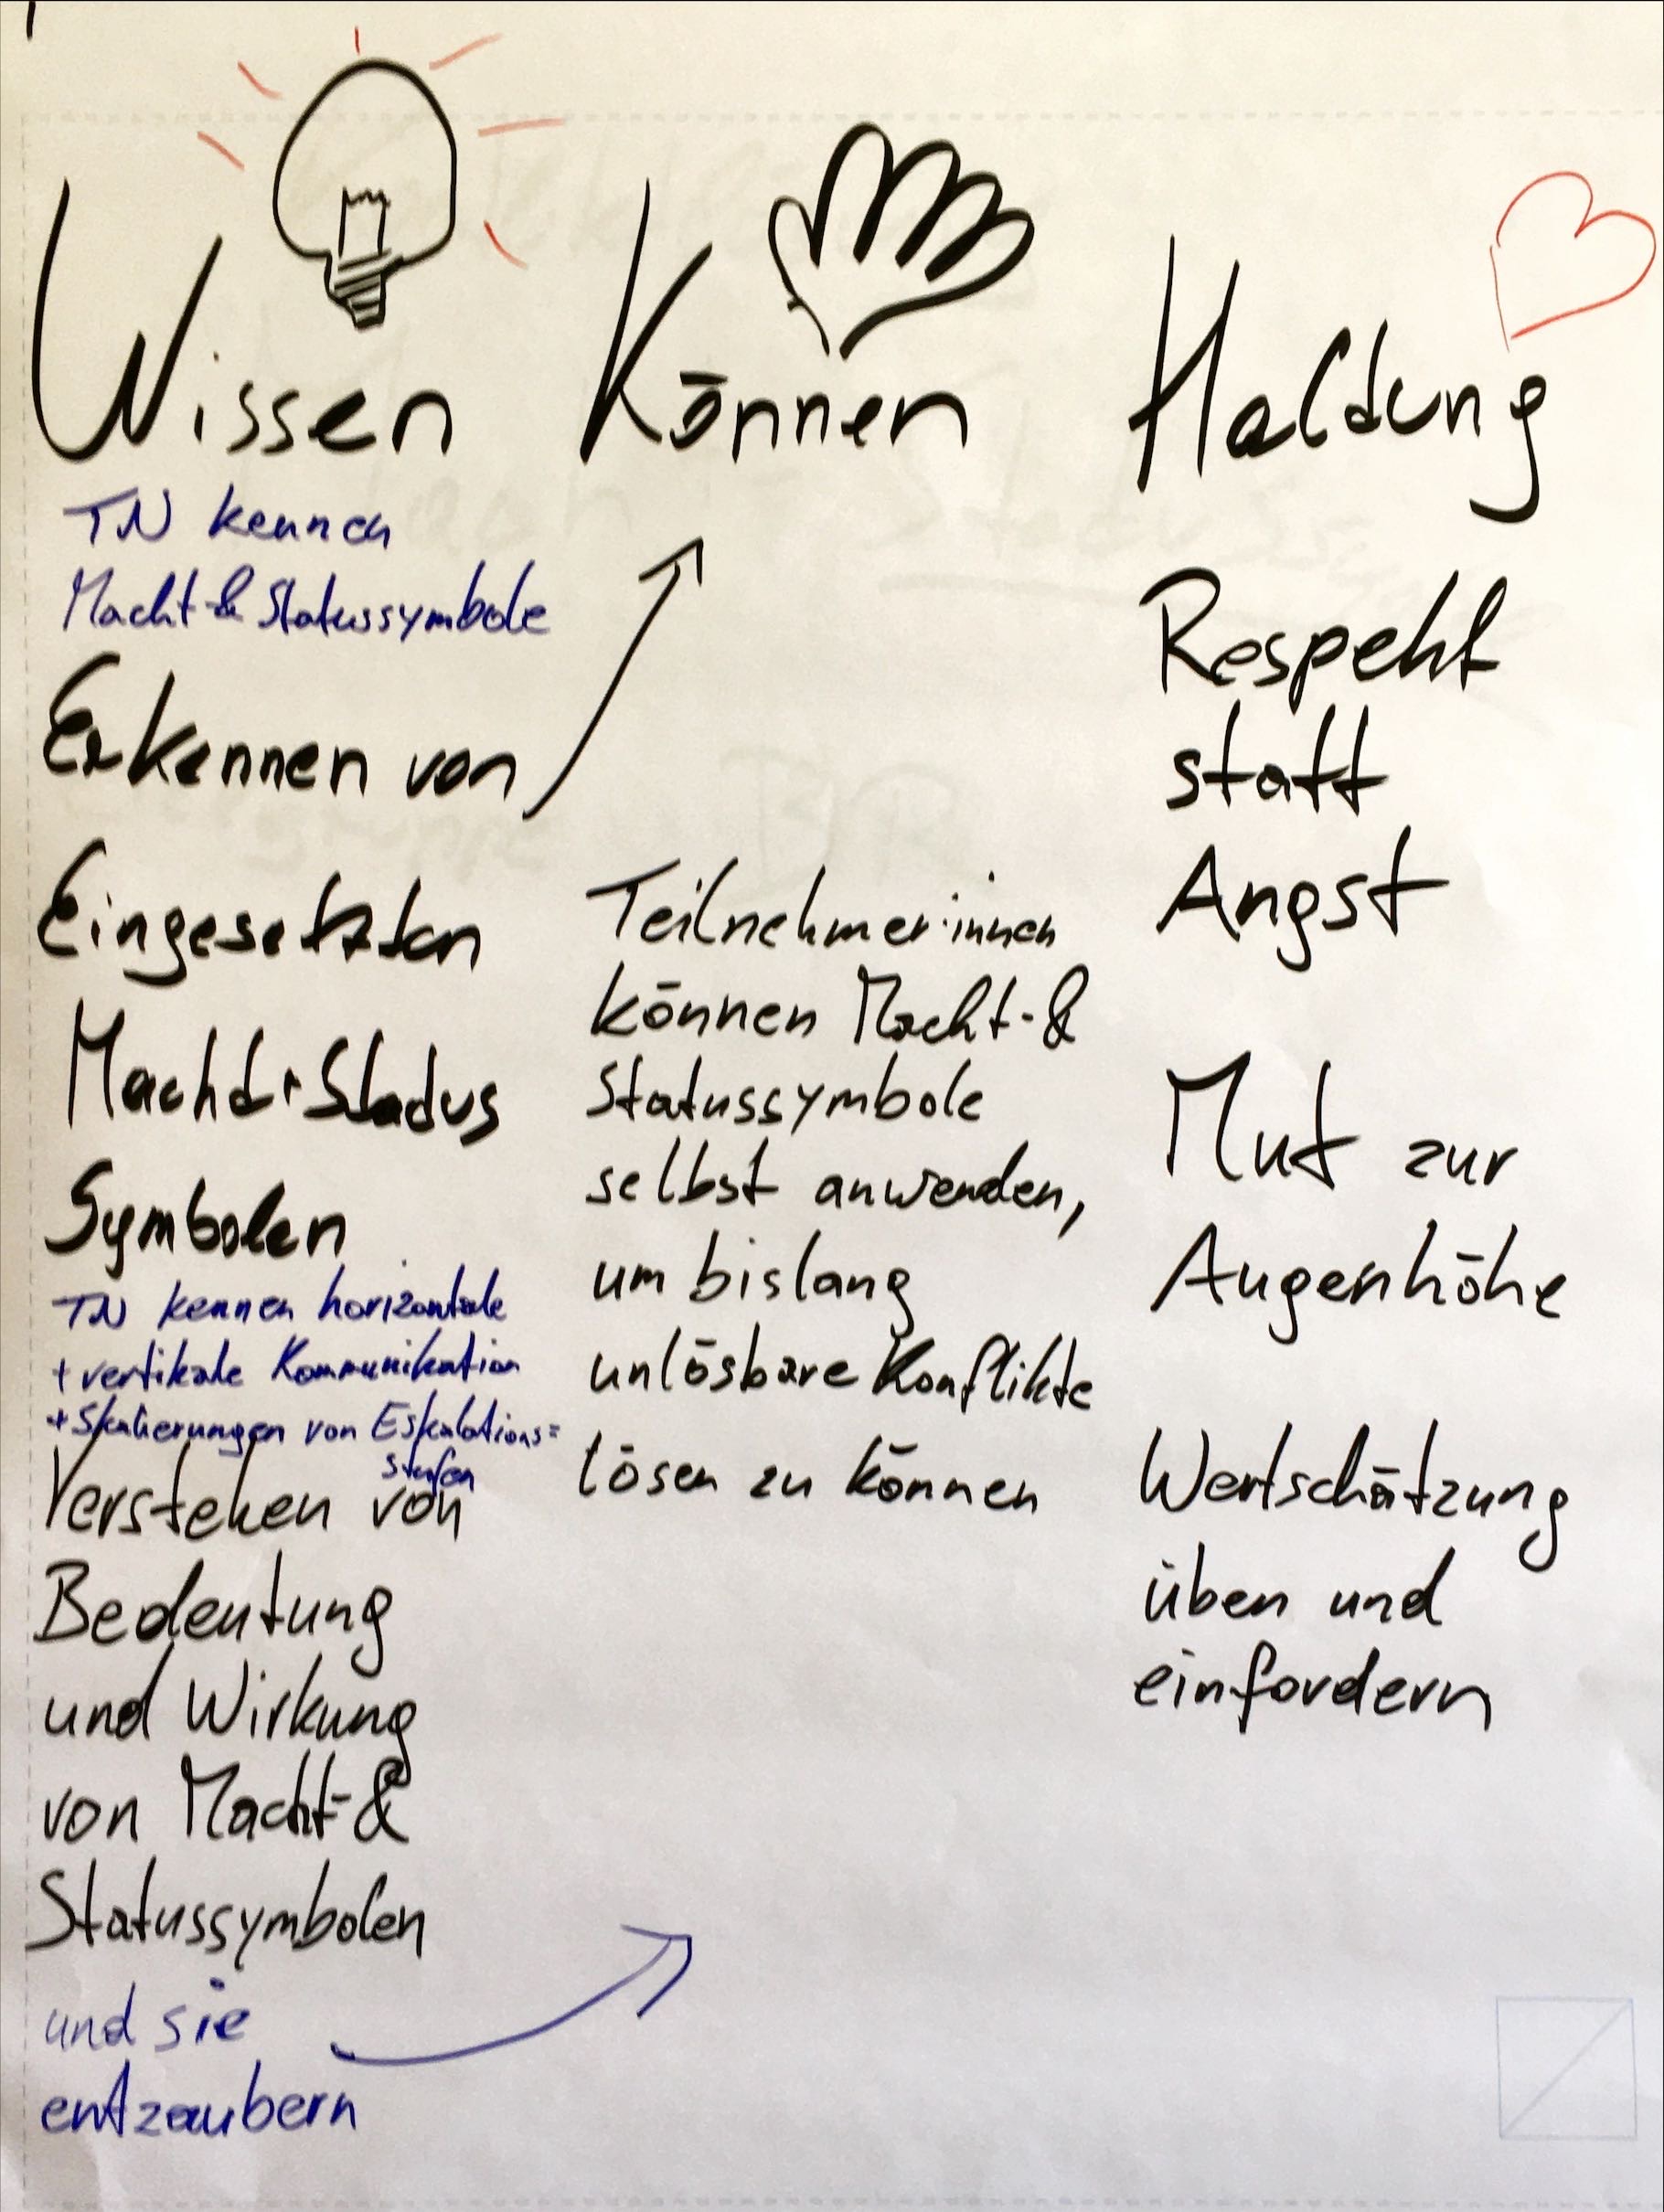 Wissen
TN kennen
Macht- & Statussymbole
Erkennen von
Eingesetzten
Macht + Status
Symbolen
TN kennen horizontale
+ vertikale Kommunikation
+ Skalierungen von Eskalations=
stufen
Verstehen von
Bedeutung
und Wirkung
von Macht- &
Statussymbolen
und sie
entzaubern
Können
Teilnehmer·innen
können Macht- &
Statussymbole
selbst anwenden,
um bislang
unlösbare Konflikte
lösen zu können
Haltung
Respekt
statt
Angst
Mut zur
Augenhöhe
Wertschätzung
üben und
einfordern